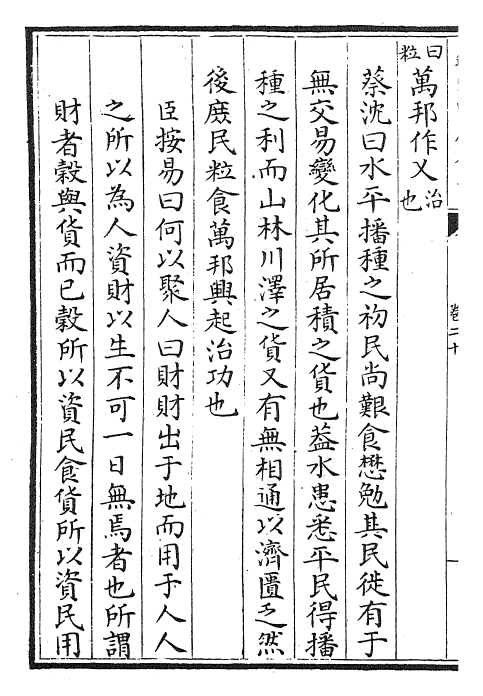 曰粒萬邦作乂治也
蔡沈曰水平播種之初民尚艱食懋勉其民徙有于
無交易變化其所居積之貨也葢水患悉平民得播
種之利而山林川澤之貨又有無相通以濟匱乏然
後庶民粒食萬邦興起治功也
臣按易曰何以聚人曰財財出于地而用于人人
之所以為人資財以生不可一日無焉者也所謂
財者穀與貨而已穀所以資民食貨所以資民用
卷二十